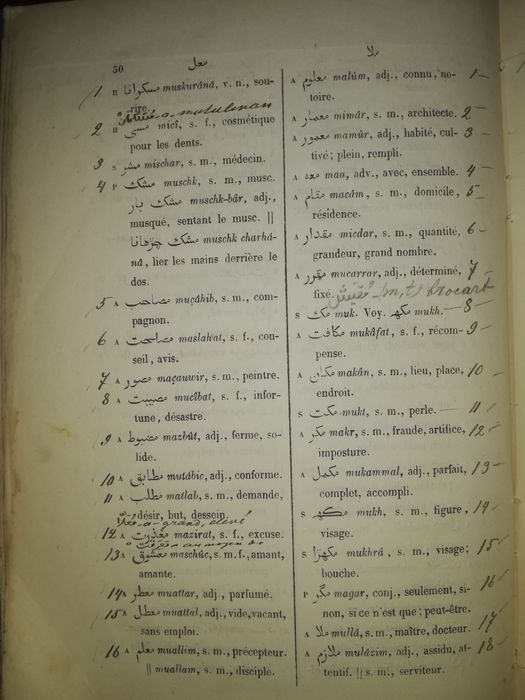 50
معل
ملا
1 H مسکرانا muskurânâ, v. n., sou-
rire.
2 H مسی micî, s. f., cosmétique
pour les dents.
3 S مشر mischar, s. m., médecin.
4 P مشك muschk, s. m., musc.
مشك بار muschk-bâr, adj.,
musqué, sentant le musc. ||
مشك چڑهانا muschk charhâ-
nâ, lier les mains derrière le
dos.
5 A مصاحب muçâhib, s. m., com-
pagnon.
6 A مصلحت maslahat, s. f., con-
seil, avis.
7 A مصور maçauwir, s. m., peintre.
8 A مصیبت mucîbat, s. f., infor-
tune, désastre.
9 A مضبوط mazbût, adj., ferme, so-
lide.
10 A مطابق mutâbic, adj., conforme.
11 A مطلب matlab, s. m., demande,
désir, but, dessein.
a-grand, élevé
12 A معذرت mazirat, s. f., excuse.
13 A معشوق maschûc, s. m. f., amant,
amante.
14 A معطر muattar, adj, parfumé.
15 A معطل muattal, adj., vide, vacant,
sans emploi.
16 A معلم muallim, s. m., précepteur.
|| muallam, s. m., disciple.
A معلوم malûm, adj., connu, no- 1
toire.
A معمار mimâr, s. m., architecte. 2
A معمور mamûr, adj., habité, cul- 3
tivé; plein, rempli.
A معه maa, adv., avec, ensemble. 4
A مقام macâm, s. m., domicile, 5
résidence.
A مقدار micdar, s. m., quantité, 6
grandeur, grand nombre.
A مقرر mucarrar, adj., déterminé, 7
fixé. مقیش (m, t) brocart
S مك muk. Voy. مکھ mukh. 8
A مکافت mukâfat, s. f., récom- 9
pense.
A مکان makân, s. m., lieu, place, 10
endroit.
S مکت mukt, s. m., perle. 11
A مکر makr, s. m., fraude, artifice, 12
imposture.
A مکمل mukammal, adj., parfait, 13
complet, accompli.
S مکھ mukh, s. m., figure, 14
visage.
S مکھڑا mukhrâ, s. m., visage; 15
bouche.
P مگر magar, conj., seulement, si- 16
non, si ce n'est que; peut-être.
A ملا mullâ, s. m., maître, docteur. 17
A ملازم mulâzim, adj., assidu, at- 18
tentif. || s. m., serviteur.